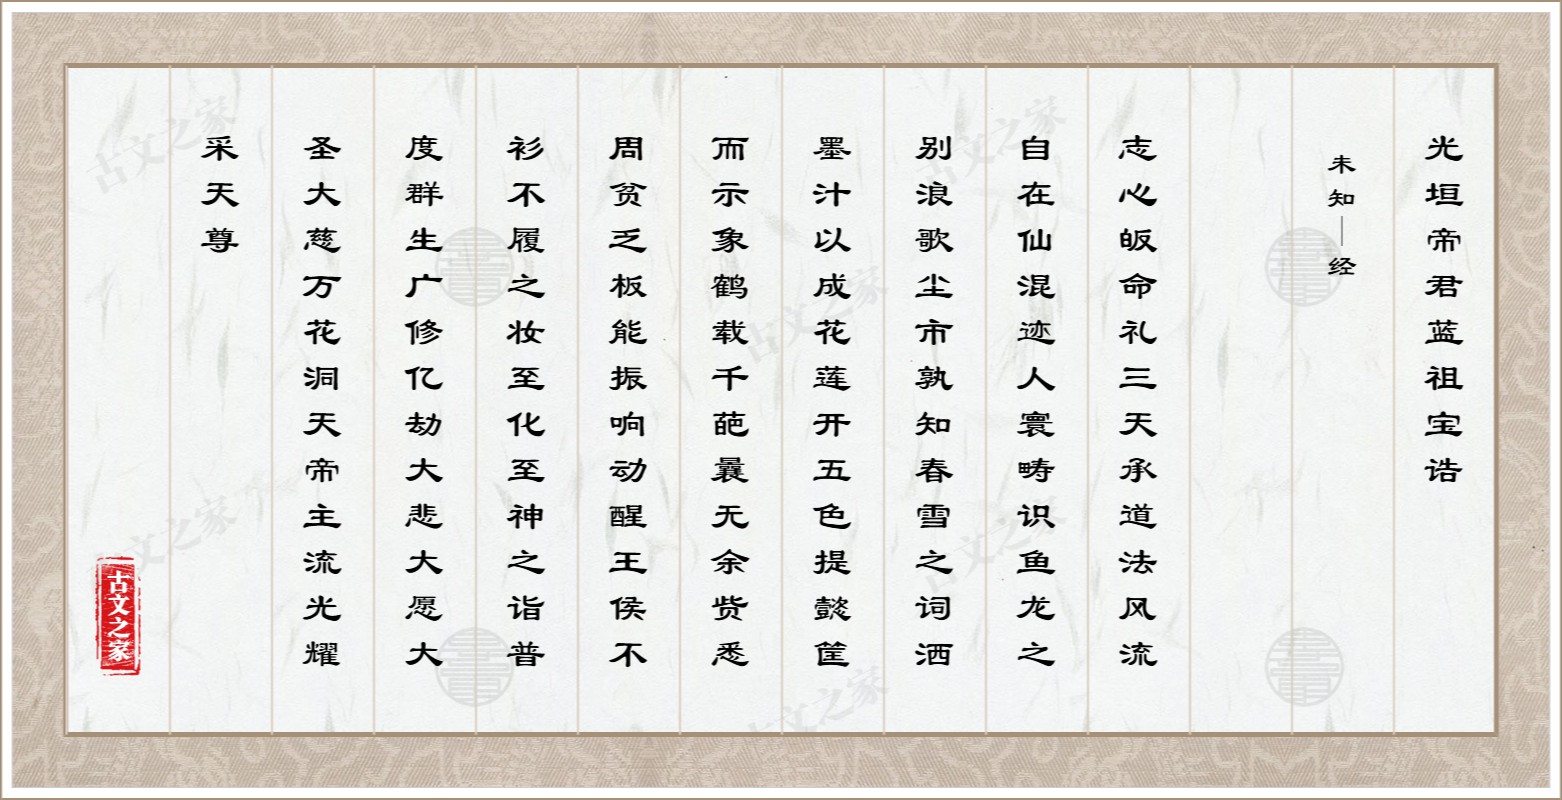 光垣帝君蓝祖宝诰
未知—经
志心皈命礼三天承道法风流
自在仙混迹人寰畴识鱼龙之
别浪歌尘市孰知春雪之词洒
墨汁以成花莲开五色提懿筐
而示象鹤载千葩曩无余赀悉
周贫乏板能振响动醒王侯不
衫不履之妆至化至神之诣普
度群生广修亿劫大悲大愿大
圣大慈万花洞天帝主流光耀
采天尊
古文之家